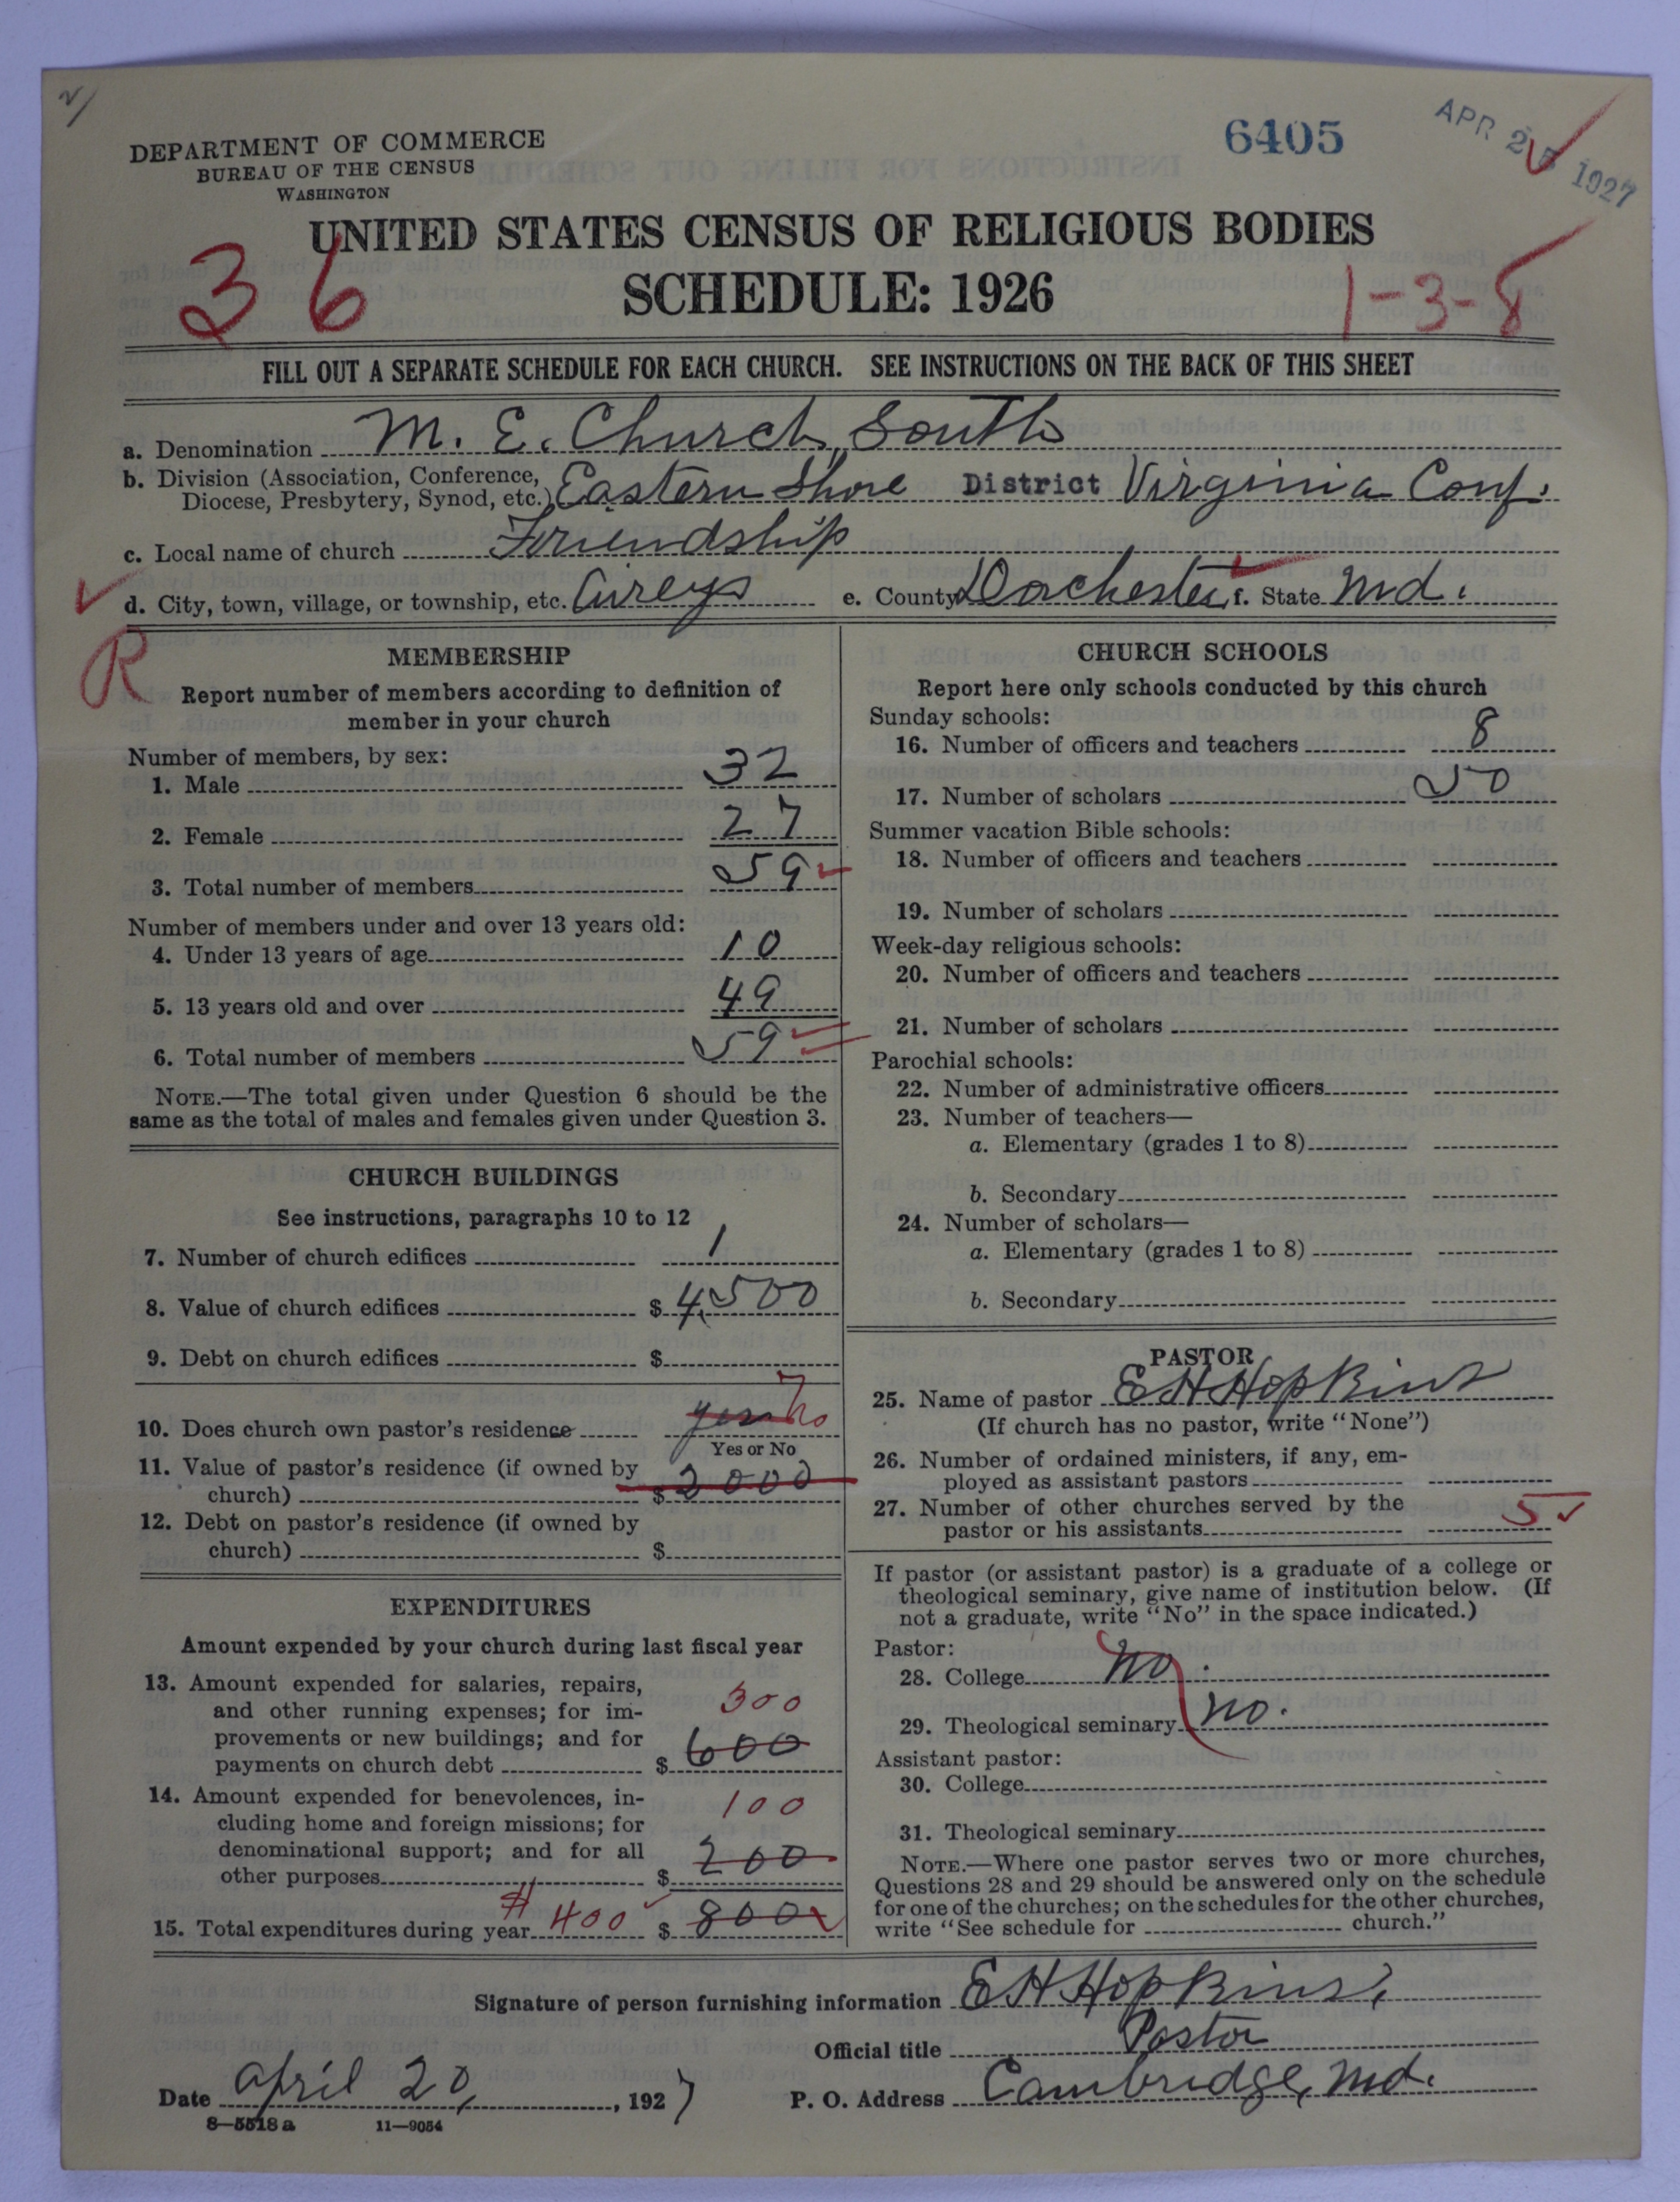 DEPARTMENT OF COMMERCE
BUREAU OF THE CENSUS
WASHINGTON
6405
APR 2 1927
UNITED STATES CENSUS OF RELIGIOUS BODIES
SCHEDULE: 1926
36
1-3-8
FILL OUT A SEPARATE SCHEDULE FOR EACH CHURCH. SEE INSTRUCTIONS ON THE BACK OF THIS SHEET
a. Denomination M. E. Church, South
b. Division (Association, Conference,
Diocese, Presbytery, Synod, etc.) Eastern Shore District Virginia Conf.
c. Local name of church Friendship
d. City, town, village, or township, etc. Aireys e. County Dorchester f. State Md.
R
MEMBERSHIP
Report number of members according to definition of
member in your church
Number of members, by sex:
1. Male 32
2. Female 27
3. Total number of members 59
Number of members under and over 13 years old:
4. Under 13 years of age 10
5. 13 years old and over 49
6. Total number of members 59
NOTE.—The total given under Question 6 should be the
same as the total of males and females given under Question 3.
CHURCH BUILDINGS
See instructions, paragraphs 10 to 12
7. Number of church edifices 1
8. Value of church edifices $ 4,500
9. Debt on church edifices $
10. Does church own pastor's residence yes No
Yes or No
11. Value of pastor's residence (if owned by
church) $ 2000
12. Debt on pastor's residence (if owned by
church) $
EXPENDITURES
Amount expended by your church during last fiscal year
13. Amount expended for salaries, repairs,
and other running expenses; for im-
provements or new buildings; and for
payments on church debt $ 300 600
14. Amount expended for benevolences, in-
cluding home and foreign missions; for
denominational support; and for all
other purposes $ 100 200
15. Total expenditures during year # 400 $ 800
CHURCH SCHOOLS
Report here only schools conducted by this church
Sunday schools:
16. Number of officers and teachers 8
17. Number of scholars 50
Summer vacation Bible schools:
18. Number of officers and teachers
19. Number of scholars
Week-day religious schools:
20. Number of officers and teachers
21. Number of scholars
Parochial schools:
22. Number of administrative officers
23. Number of teachers—
a. Elementary (grades 1 to 8)
b. Secondary
24. Number of scholars—
a. Elementary (grades 1 to 8)
b. Secondary
PASTOR
25. Name of pastor E H Hopkins
(If church has no pastor, write "None")
26. Number of ordained ministers, if any, em-
ployed as assistant pastors
27. Number of other churches served by the
pastor or his assistants 5
If pastor (or assistant pastor) is a graduate of a college or
theological seminary, give name of institution below. (If
not a graduate, write "No" in the space indicated.)
Pastor:
28. College No.
29. Theological seminary No.
Assistant pastor:
30. College
31. Theological seminary
NOTE.—Where one pastor serves two or more churches,
Questions 28 and 29 should be answered only on the schedule
for one of the churches; on the schedules for the other churches,
write "See schedule for church."
Signature of person furnishing information E H Hopkins,
Official title Pastor
Date April 20, 1927 P. O. Address Cambridge, Md.
8—5518 a 11—9054